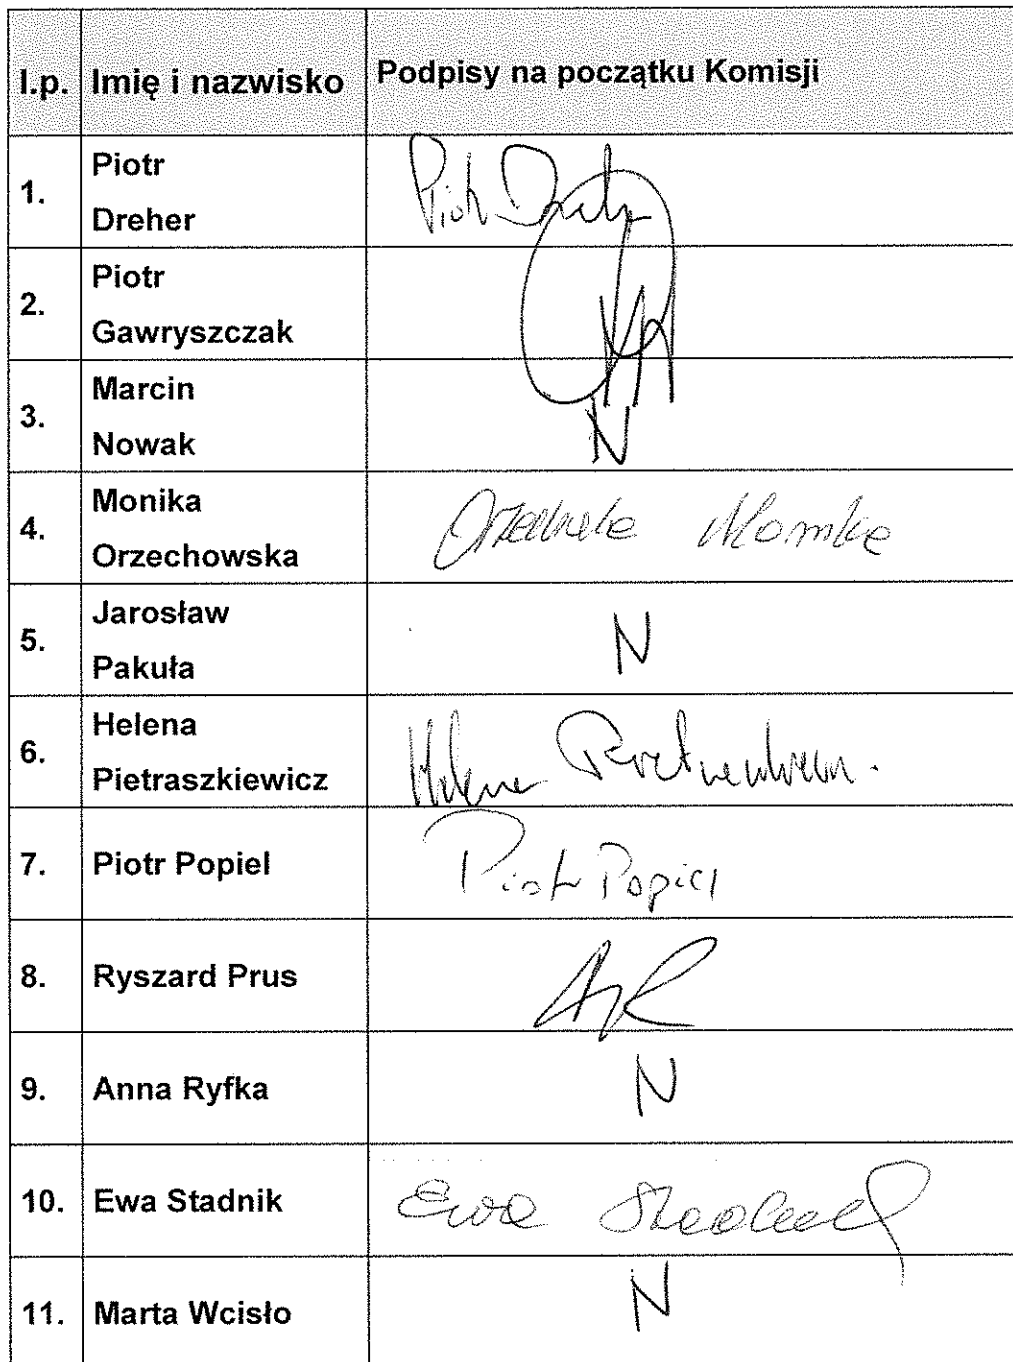 l.p. Imię i nazwisko Podpisy na początku Komisji
1. Piotr Dreher Piotr
2. Piotr Gawryszczak
3. Marcin Nowak N
4. Monika Orzechowska
5. Jarosław Pakuła N
6. Helena Pietraszkiewicz Helena
7. Piotr Popiel Piotr Popiel
8. Ryszard Prus
9. Anna Ryfka N
10. Ewa Stadnik Ewa
11. Marta Wcisło N